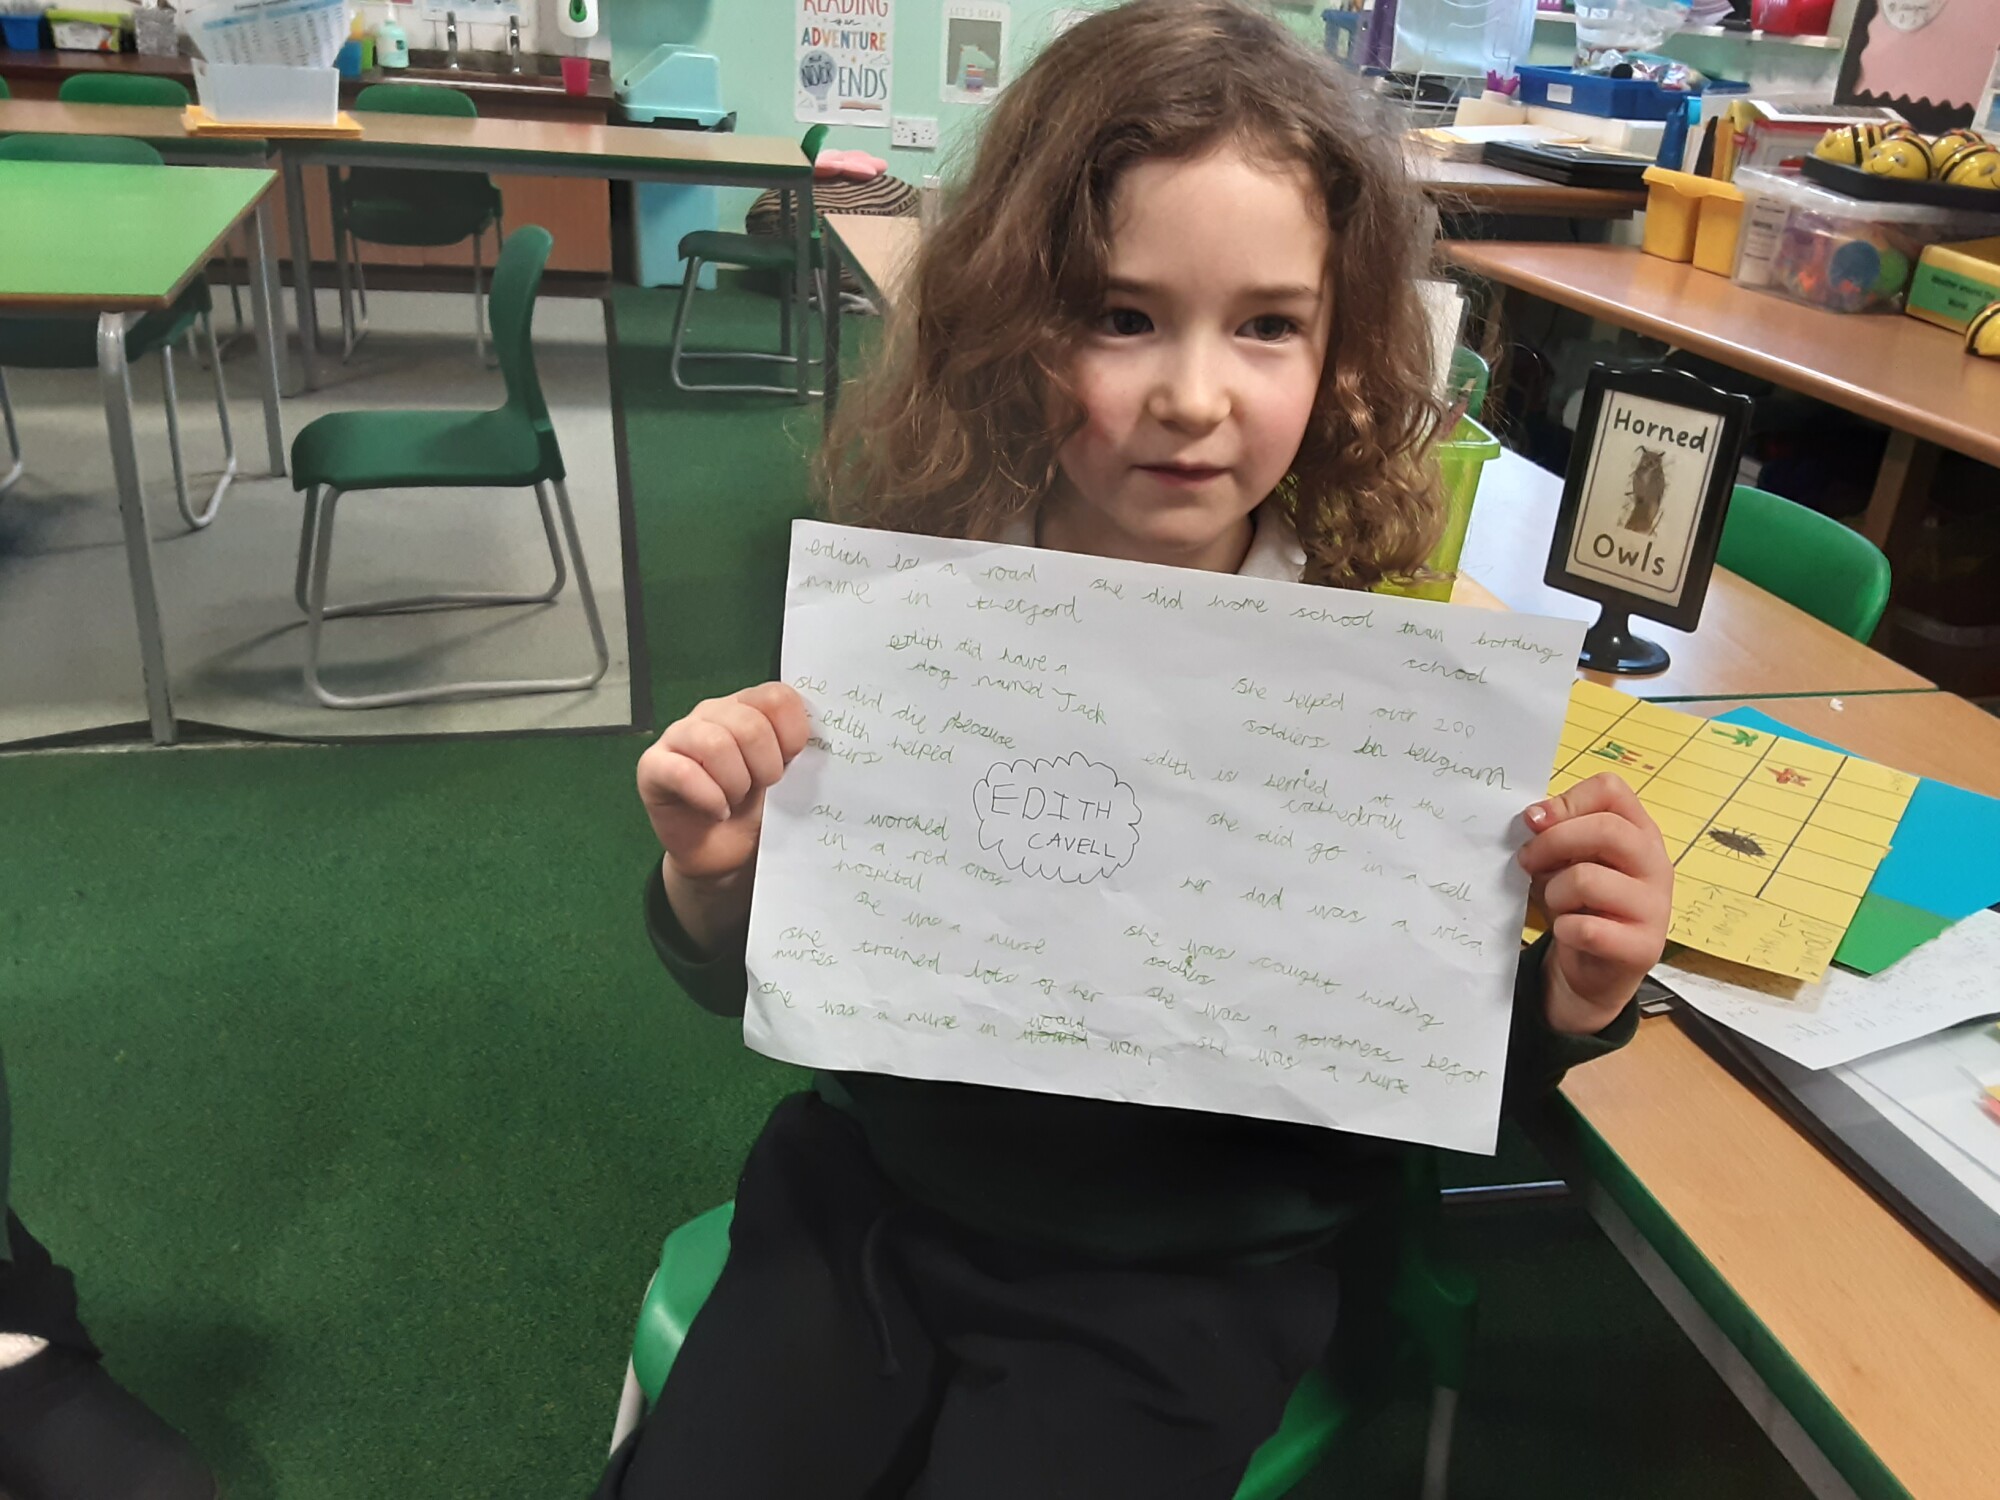 READING
an
ADVENTURE
that
NEVER
ENDS
LET'S READ
Horned
Owls
edith is a road
name in thetford
she did home school than bording
school
edith did have a
dog named Jack
she helped over 200
soldiers in belligiam
she did die because
edith helped
soldiers
edith is berried at the
cathedrall
EDITH
CAVELL
she did go in a cell
she worcked
in a red cross
hospital
her dad was a vica
she was a nurse
she was caught hiding
soldiers
she trained lots of her
nurses
she was a governess befor
she was a nurse
she was a nurse in
war